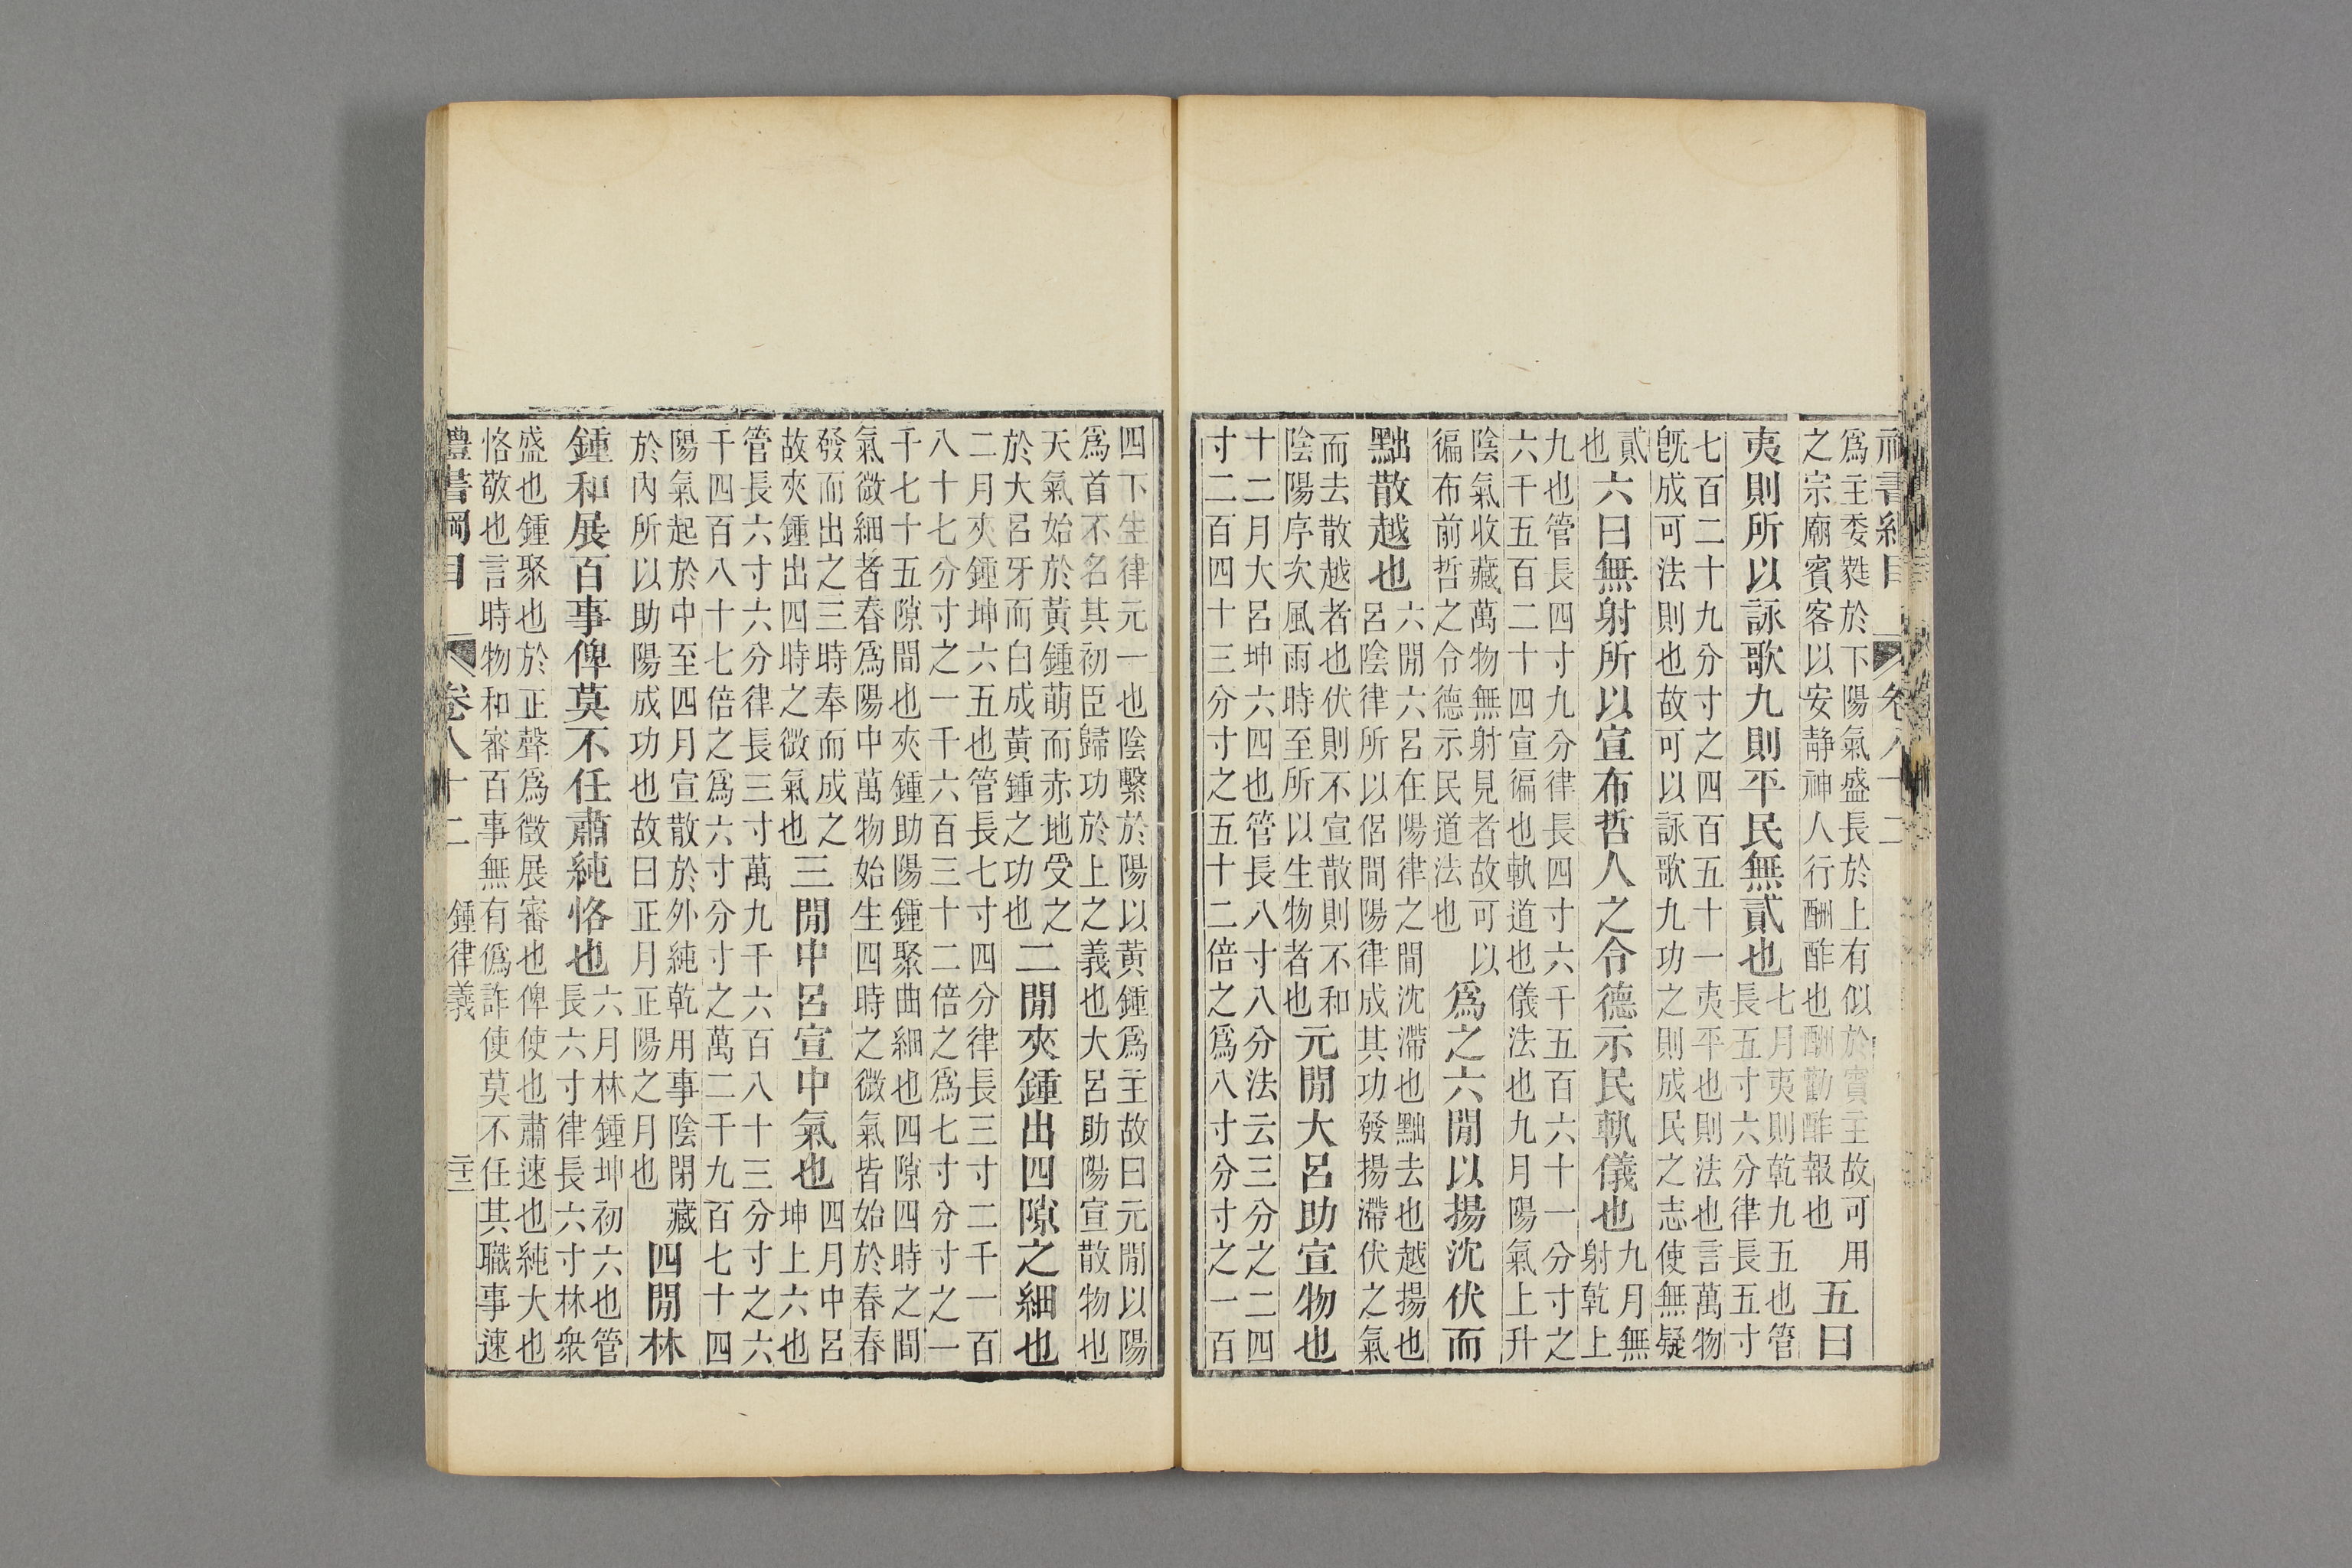 禮書綱目 卷八十二
爲主委蕤於下陽氣盛長於上有似於賓主故可用
之宗廟賓客以安静神人行酬酢也酬勸酢報也
五曰
夷則所以詠歌九則平民無貳也
七月夷則乾九五也管
長五寸六分律長五寸
七百二十九分寸之四百五十一夷平也則法也言萬物
旣成可法則也故可以詠歌九功之則成民之志使無疑
貳
也
六曰無射所以宣布哲人之令德示民軌儀也
九月無
射乾上
九也管長四寸九分律長四寸六千五百六十一分寸之
六千五百二十四宣徧也軌道也儀法也九月陽氣上升
陰氣收藏萬物無射見者故可以
徧布前哲之令德示民道法也
爲之六閒以揚沈伏而
黜散越也
六閒六呂在陽律之閒沈滯也黜去也越揚也
呂陰律所以侶閒陽律成其功發揚滯伏之氣
而去散越者也伏則不宣散則不和
陰陽序次風雨時至所以生物者也
元閒大呂助宣物也
十二月大呂坤六四也管長八寸八分法云三分之二四
寸二百四十三分寸之五十二倍之爲八寸分寸之一百
四下生律元一也陰繫於陽以黃鍾爲主故曰元閒以陽
爲首不名其初臣歸功於上之義也大呂助陽宣散物也
天氣始於黃鍾萌而赤地受之
於大呂牙而白成黃鍾之功也
二閒夾鍾出四隙之細也
二月夾鍾坤六五也管長七寸四分律長三寸二千一百
八十七分寸之一千六百三十二倍之爲七寸分寸之一
千七十五隙閒也夾鍾助陽鍾聚曲細也四隙四時之閒
氣微細者春爲陽中萬物始生四時之微氣皆始於春春
發而出之三時奉而成之
故夾鍾出四時之微氣也
三閒中呂宣中氣也
四月中呂
坤上六也
管長六寸六分律長三寸萬九千六百八十三分寸之六
千四百八十七倍之爲六寸分寸之萬二千九百七十四
陽氣起於中至四月宣散於外純乾用事陰閉藏
於內所以助陽成功也故曰正月正陽之月也
四閒林
鍾和展百事俾莫不任肅純恪也
六月林鍾坤初六也管
長六寸律長六寸林衆
盛也鍾聚也於正聲爲徵展審也俾使也肅速也純大也
恪敬也言時物和審百事無有僞詐使莫不任其職事速
禮書綱目 卷八十二 鍾律義 二十三